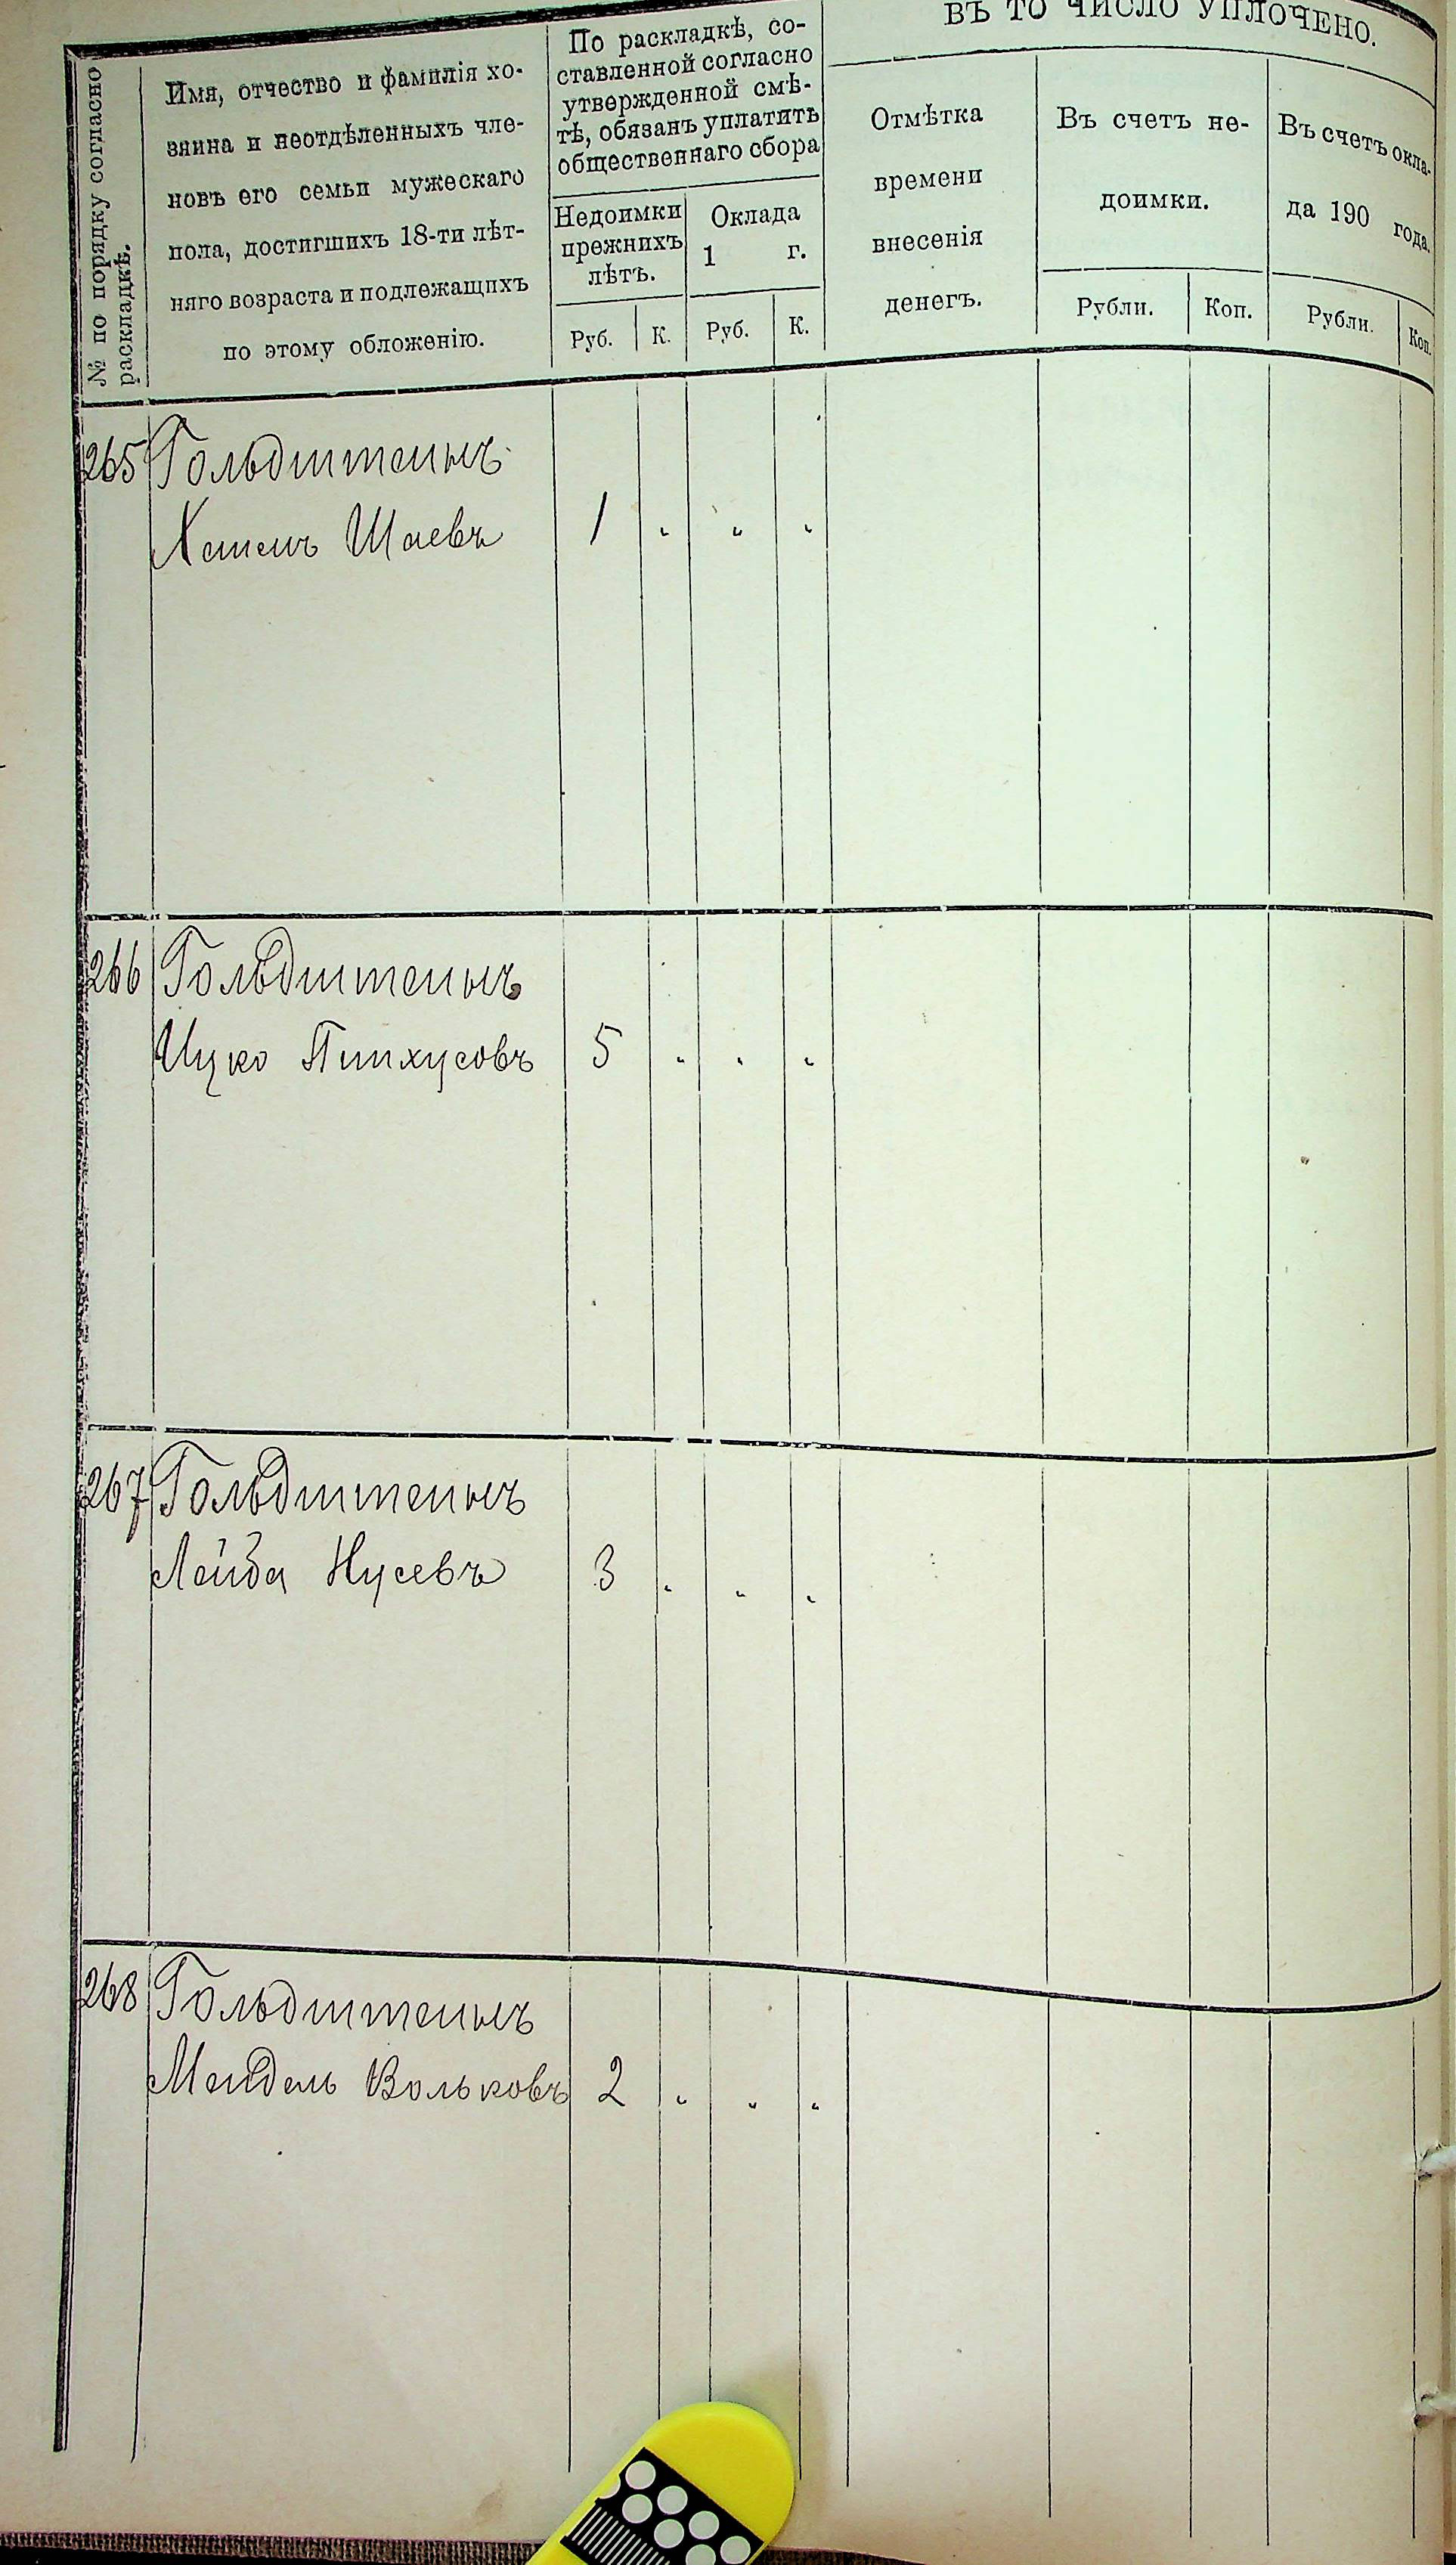 ВЪ ТО ЧИСЛО УПЛОЧЕНО.
№ по порядку согласно
раскладкѣ.
Имя, отчество и фамилія хо-
зяина и неотдѣленныхъ чле-
новъ его семьи мужескаго
пола, достигшихъ 18-ти лѣт-
няго возраста и подлежащихъ
по этому обложенію.
По раскладкѣ, со-
ставленной согласно
утвержденной смѣ-
тѣ, обязанъ уплатить
общественнаго сбора
Недоимки
прежнихъ
лѣтъ.
Оклада
1 г.
Руб. К. Руб. К.
Отмѣтка
времени
внесенія
денегъ.
Въ счетъ не-
доимки.
Рубли. Коп.
Въ счетъ окла-
да 190 года.
Рубли. Коп.
265 Гольдштейнъ
Шаевъ 1 " " "
266 Гольдштейнъ
Ицко Пинхусовъ 5 " " "
267 Гольдштейнъ
Лейба Нусевъ 3 " " "
268 Гольдштейнъ
Мендель Вольковъ 2 " " "